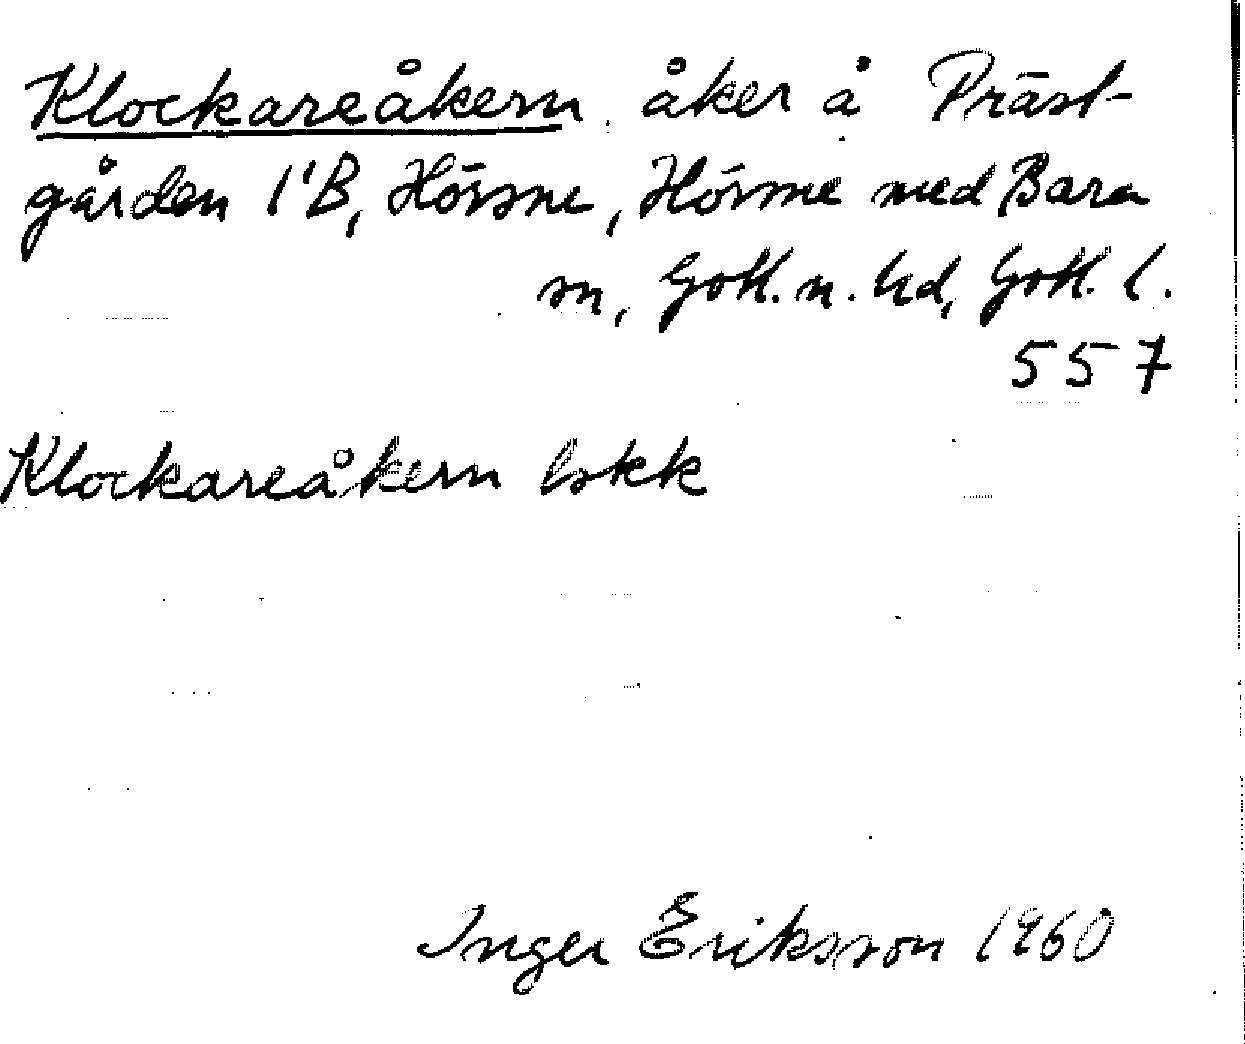 Klockareåkern, åker å Präst-
gården 1¹B, Hörsne, Hörsne med Bara
sn, Gotl. n. hd, Gotl. l.
557
Klockareåkern lskk
Inger Eriksson 1960